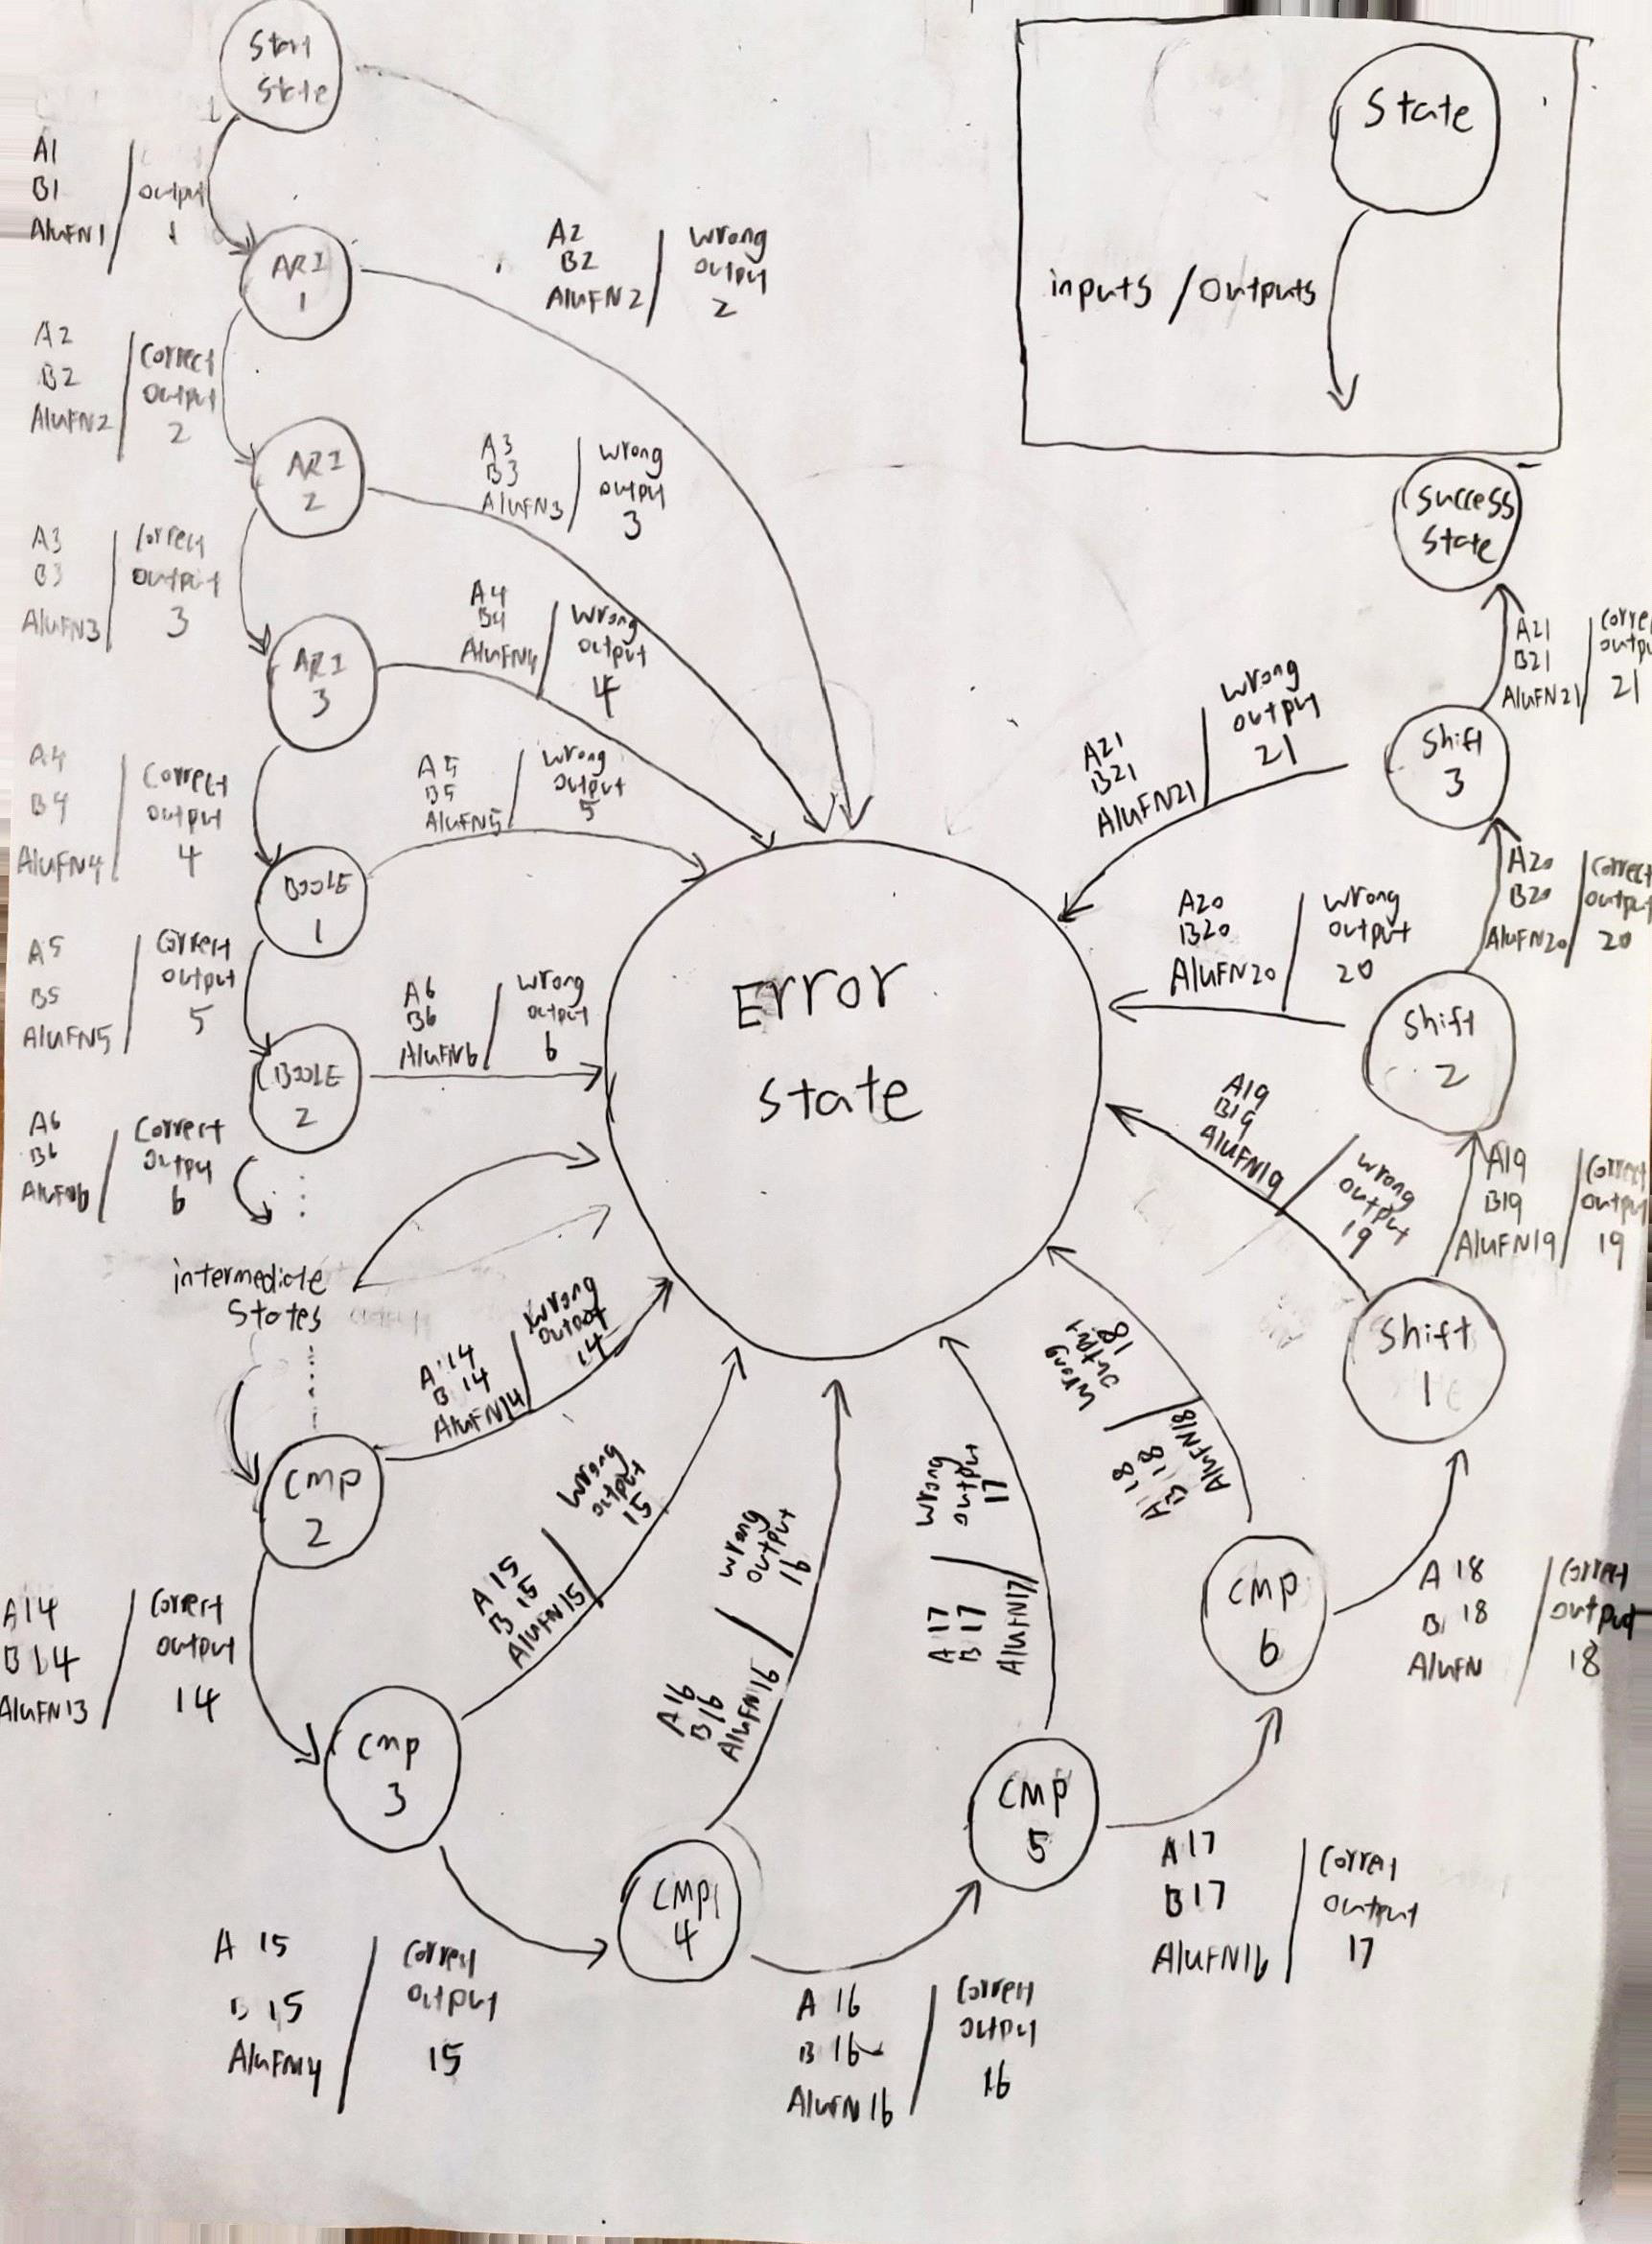 Start
State
A1
B1
AluFN1
output
1
ARI
1
A2
B2
AluFN2
Wrong
output
2
A2
B2
AluFN2
Correct
output
2
ARI
2
A3
B3
AluFN3
Wrong
output
3
A3
B3
AluFN3
Correct
output
3
ARI
3
A4
B4
AluFN4
Wrong
output
4
A4
B4
AluFN4
Correct
output
4
BOOLE
1
A5
B5
AluFN5
Wrong
output
5
A5
B5
AluFN5
Correct
output
5
BOOLE
2
A6
B6
AluFN6
Wrong
output
6
A6
B6
AluFN6
Correct
output
6
intermediate
States
CMP
2
A14
B 14
AluFN14
Wrong
output
14
A14
B14
AluFN13
Correct
output
14
CMP
3
A 15
B 15
AluFN15
Wrong
output
15
A 15
B 15
AluFN14
Correct
output
15
CMP
4
A16
B16
AluFN16
Wrong
output
16
A 16
B 16
AluFN16
Correct
output
16
CMP
5
A 17
B 17
AluFN17
Wrong
output
17
A 17
B 17
AluFN16
Correct
output
17
CMP
6
A 18
B 18
AluFN18
Wrong
output
18
A 18
B 18
AluFN
Correct
output
18
Shift
1
A19
B19
AluFN19
Wrong
output
19
A19
B19
AluFN19
Correct
output
19
Shift
2
A20
B20
AluFN20
Wrong
output
20
A20
B20
AluFN20
Correct
output
20
Shift
3
A21
B21
AluFN21
Wrong
output
21
A21
B21
AluFN21
Corre
outpu
21
Success
State
Error
State
State
inputs / outputs